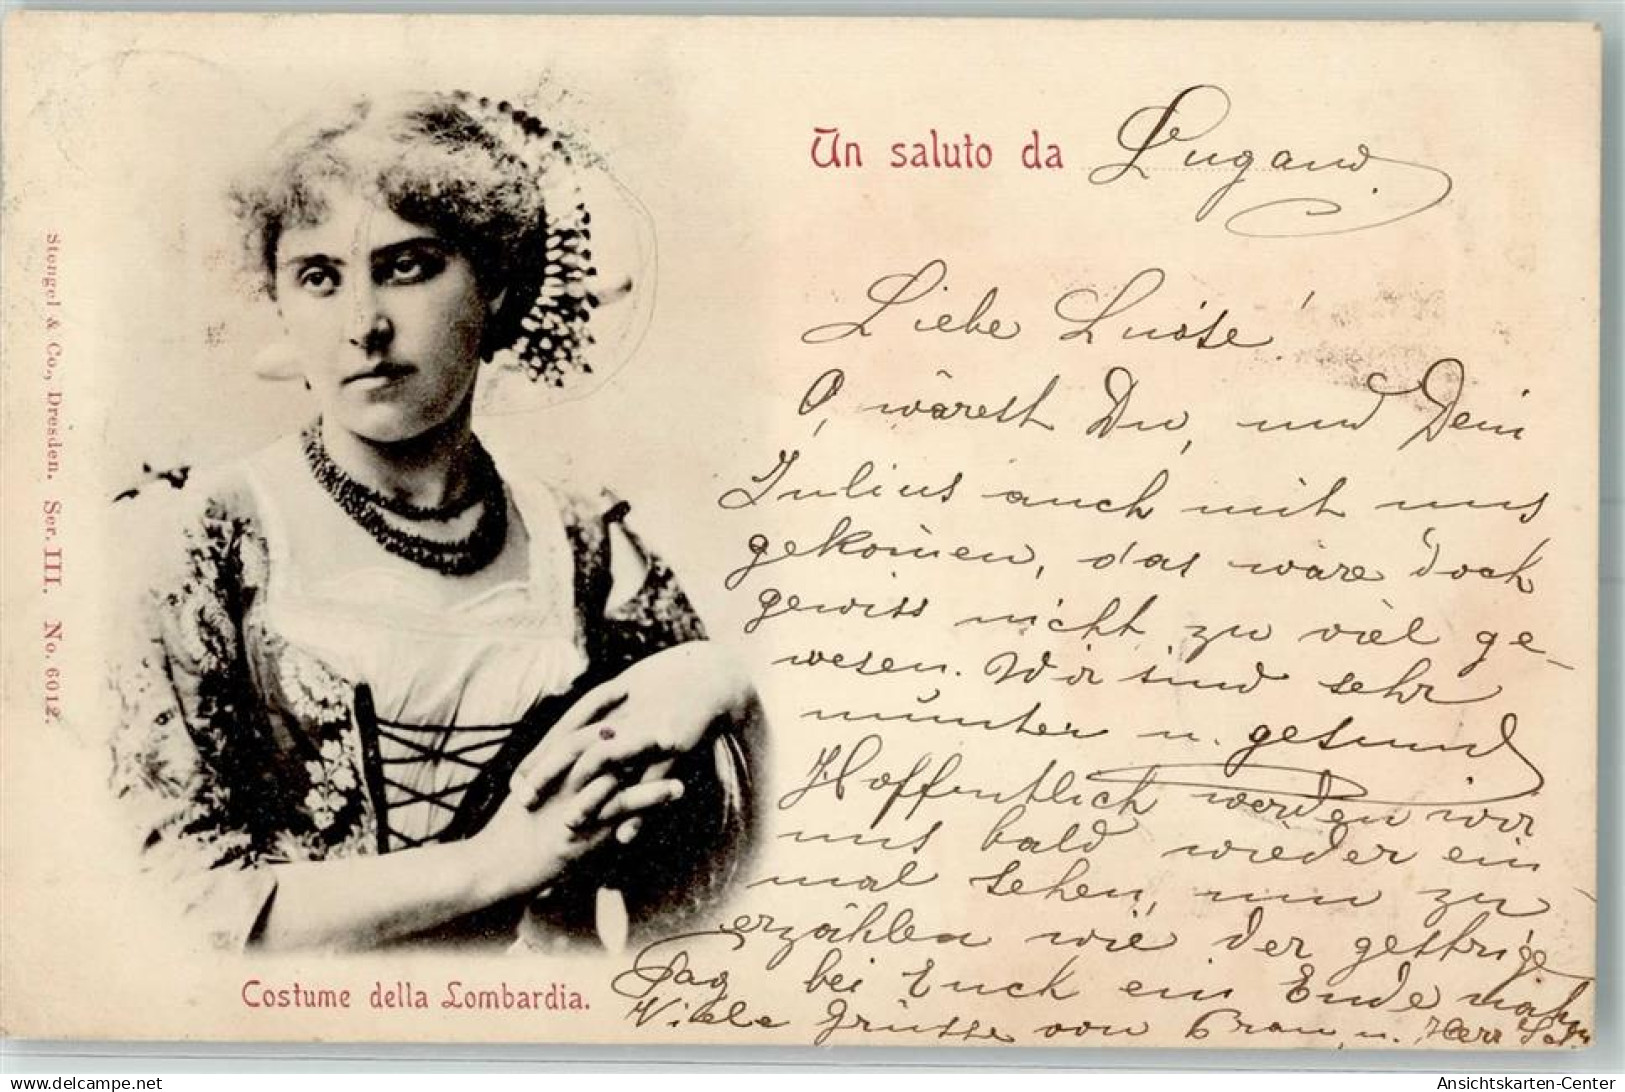 Un saluto da Lugano.
Liebe Luise!
O, wärest Du, und Dein
Julius auch mit uns
gekom̄en, das wäre doch
gewiss nicht zu viel ge-
wesen. Wir sind sehr
munter u. gesund
Hoffentlich werden wir
uns bald wieder ein
mal sehen, um zu
erzählen wie der gestrige
Tag bei Euch ein Ende nahm
Viele Grüsse von Frau u. Herr
Costume della Lombardia.
Stengel & Co., Dresden. Ser. III. No. 6012.
Ansichtskarten-Center